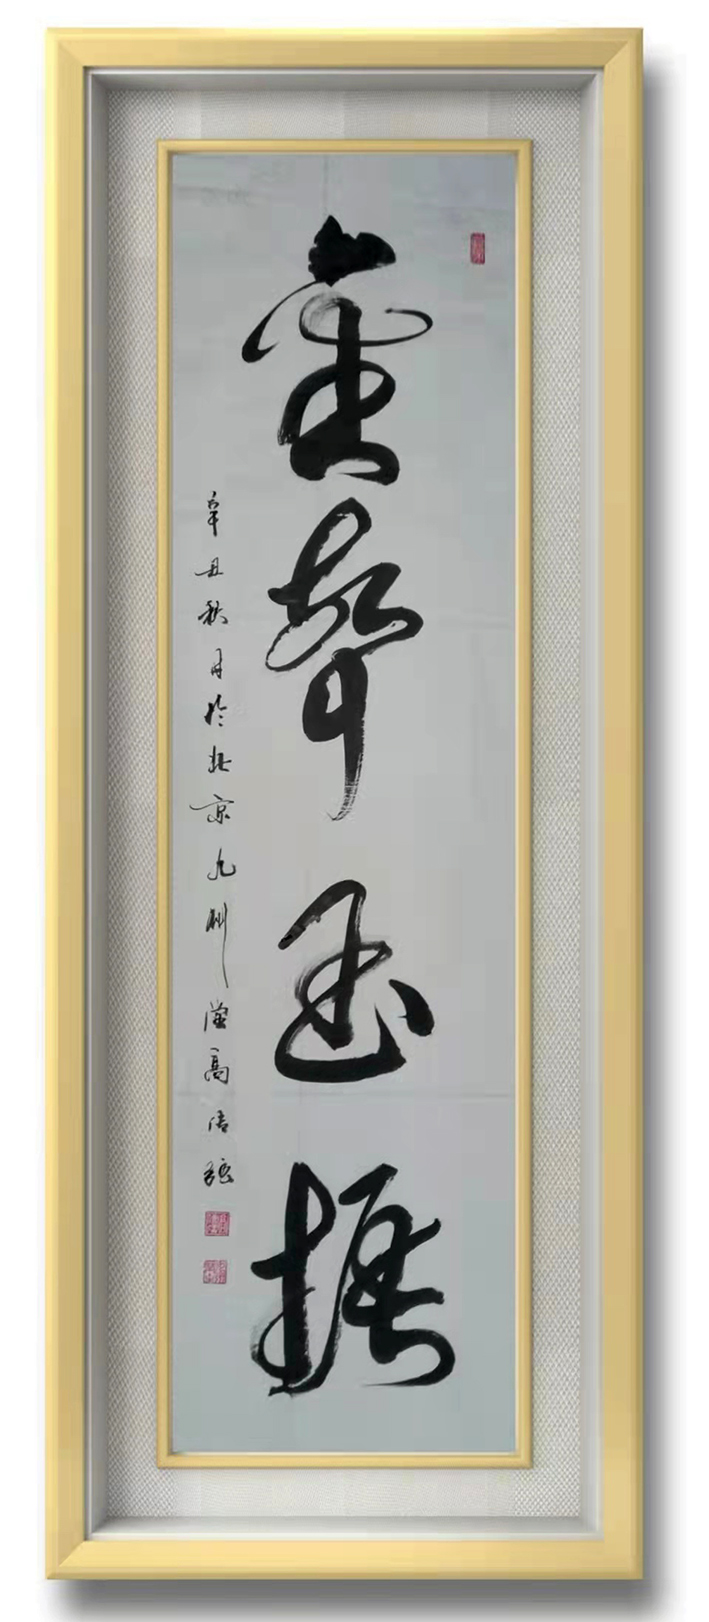 金聲玉振
辛丑秋月於北京九州高